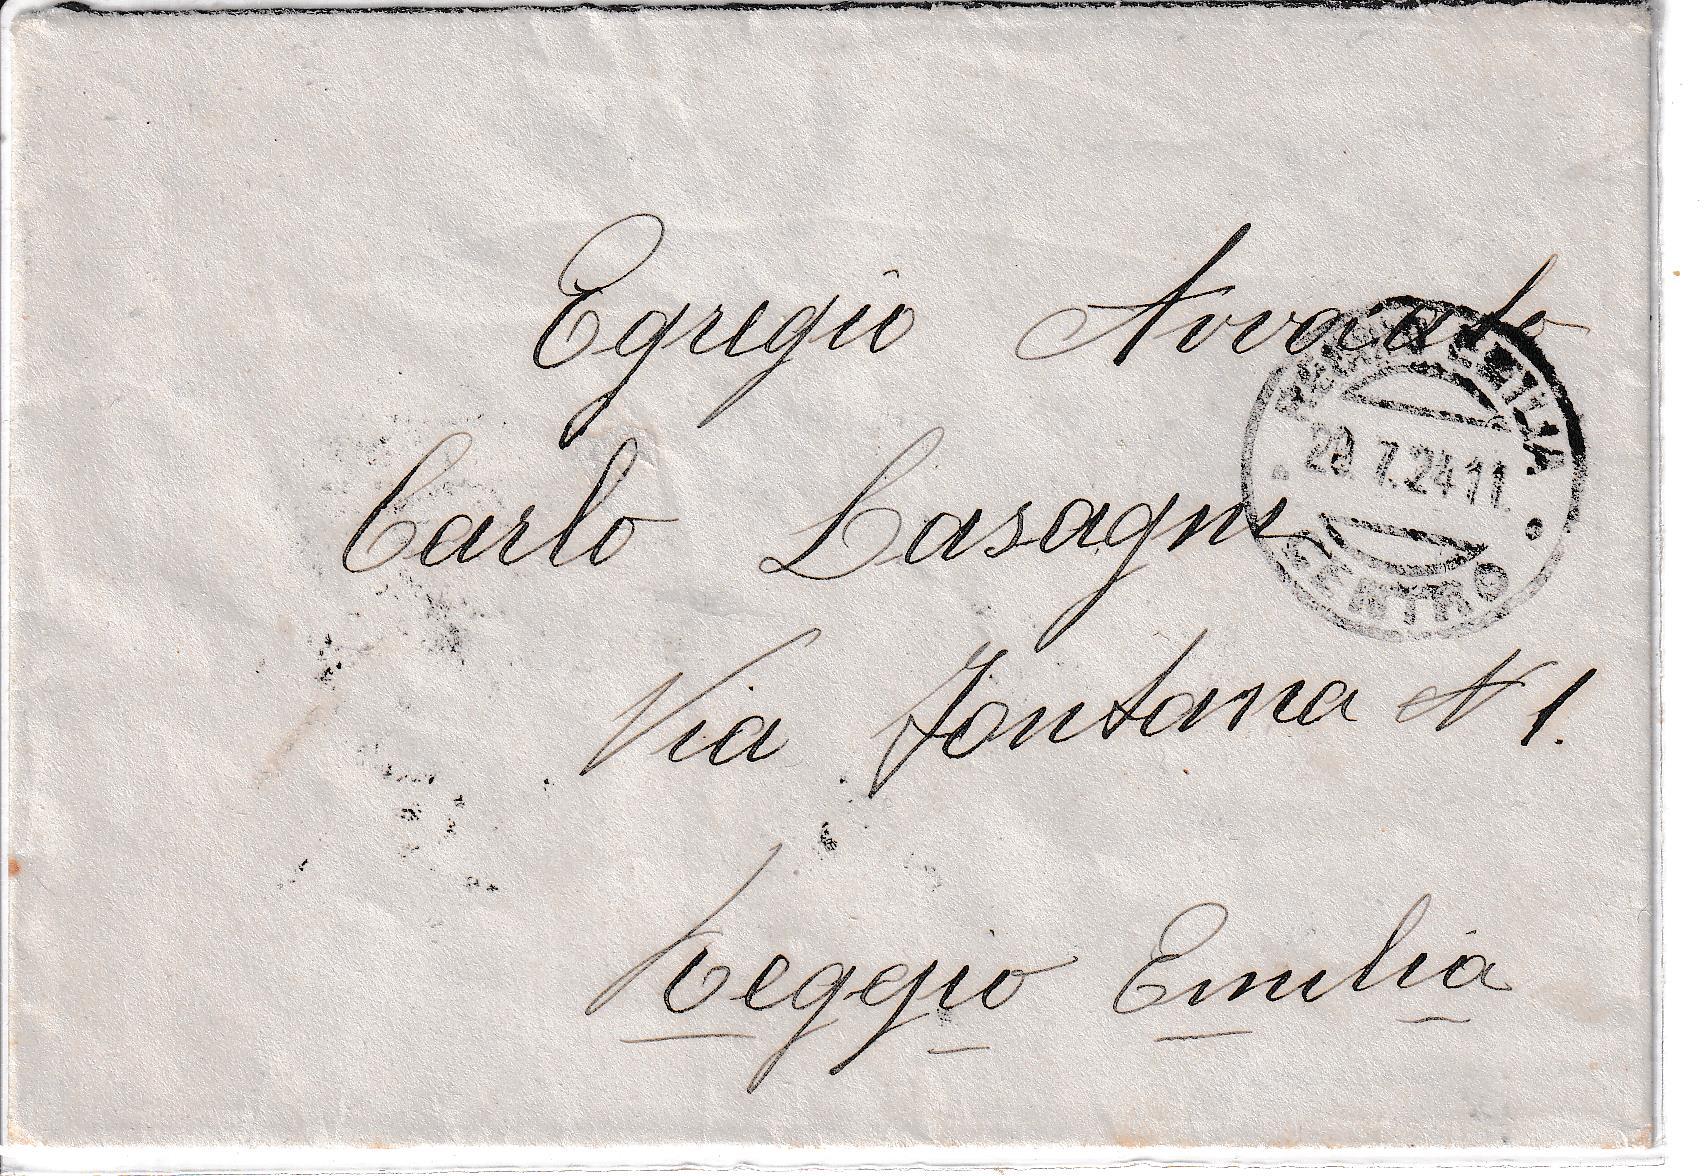 Egregio Avvocato
REGGIO EMILIA
28.7.24 11
CENTRO
Carlo Lasagni
Via Fontana N 1.
Reggio Emilia